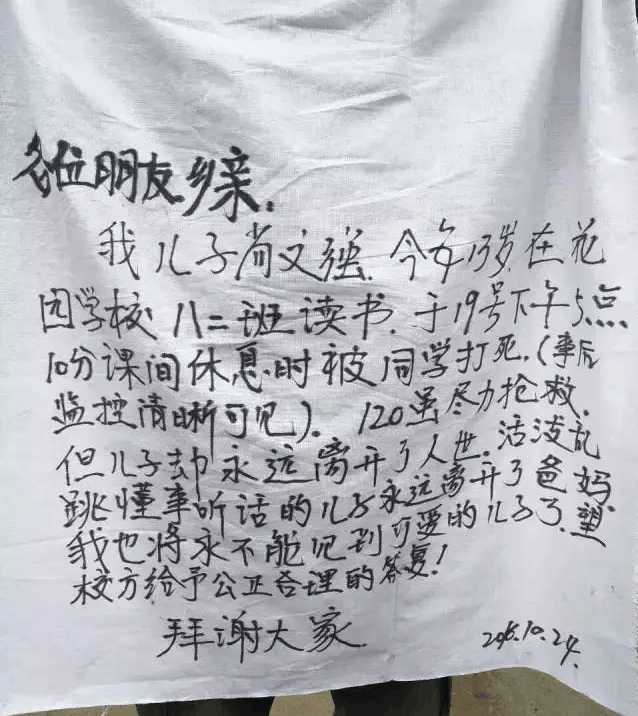 各位朋友乡亲：
我儿子尚文强，今年13岁，在花
园学校八二班读书，于19号下午5点
10分课间休息时被同学打死，（事后
监控清晰可见）。120虽尽力抢救，
但儿子却永远离开了人世。活泼乱
跳懂事听话的儿子永远离开了爸妈，
我也将永不能见到可爱的儿子了，望
校方给予公正合理的答复！
拜谢大家
2016.10.24.